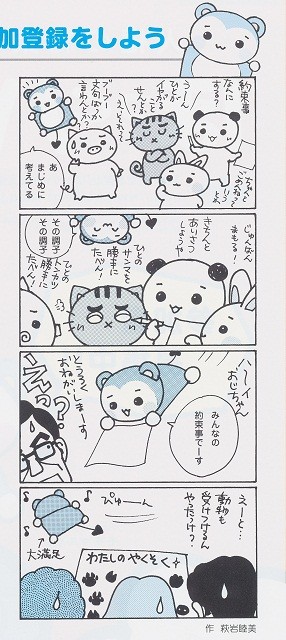 加登録をしよう
約束事
なんに
する？
うーん
ひとが
イヤがる
こと
せんとか？
えっそれって
ブーブー
文句ばっか
言わんとか？
あ
まじめに
考えてる
じゅんばん
まもる！
きちんと
あいさつ
しようや
ひとの
サンマを
勝手に
たべん！
ひとの
トンカツ
勝手に
たべん！
その調子
その調子
ハーイ
おじちゃん
みんなの
約束事でーす
とうろく
おねがいしまーす
えっ？
えーと…
動物も
受けつけるん
やったっけ？
ぴゅーん
大満足
わたしのやくそく
作 萩岩睦美